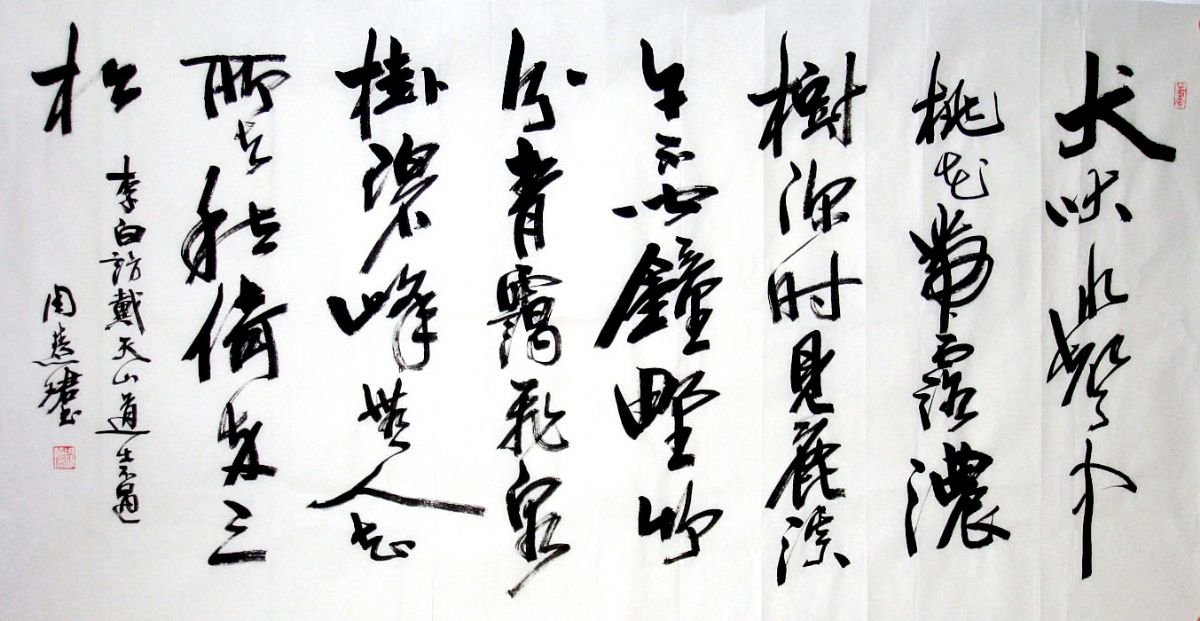 犬吠水聲中
桃花帶露濃
樹深时見鹿溪
午不聞鐘野竹
分青靄飛泉
掛碧峰無人知
所去愁倚兩三
松
李白訪戴天山道士不遇
周慧珺